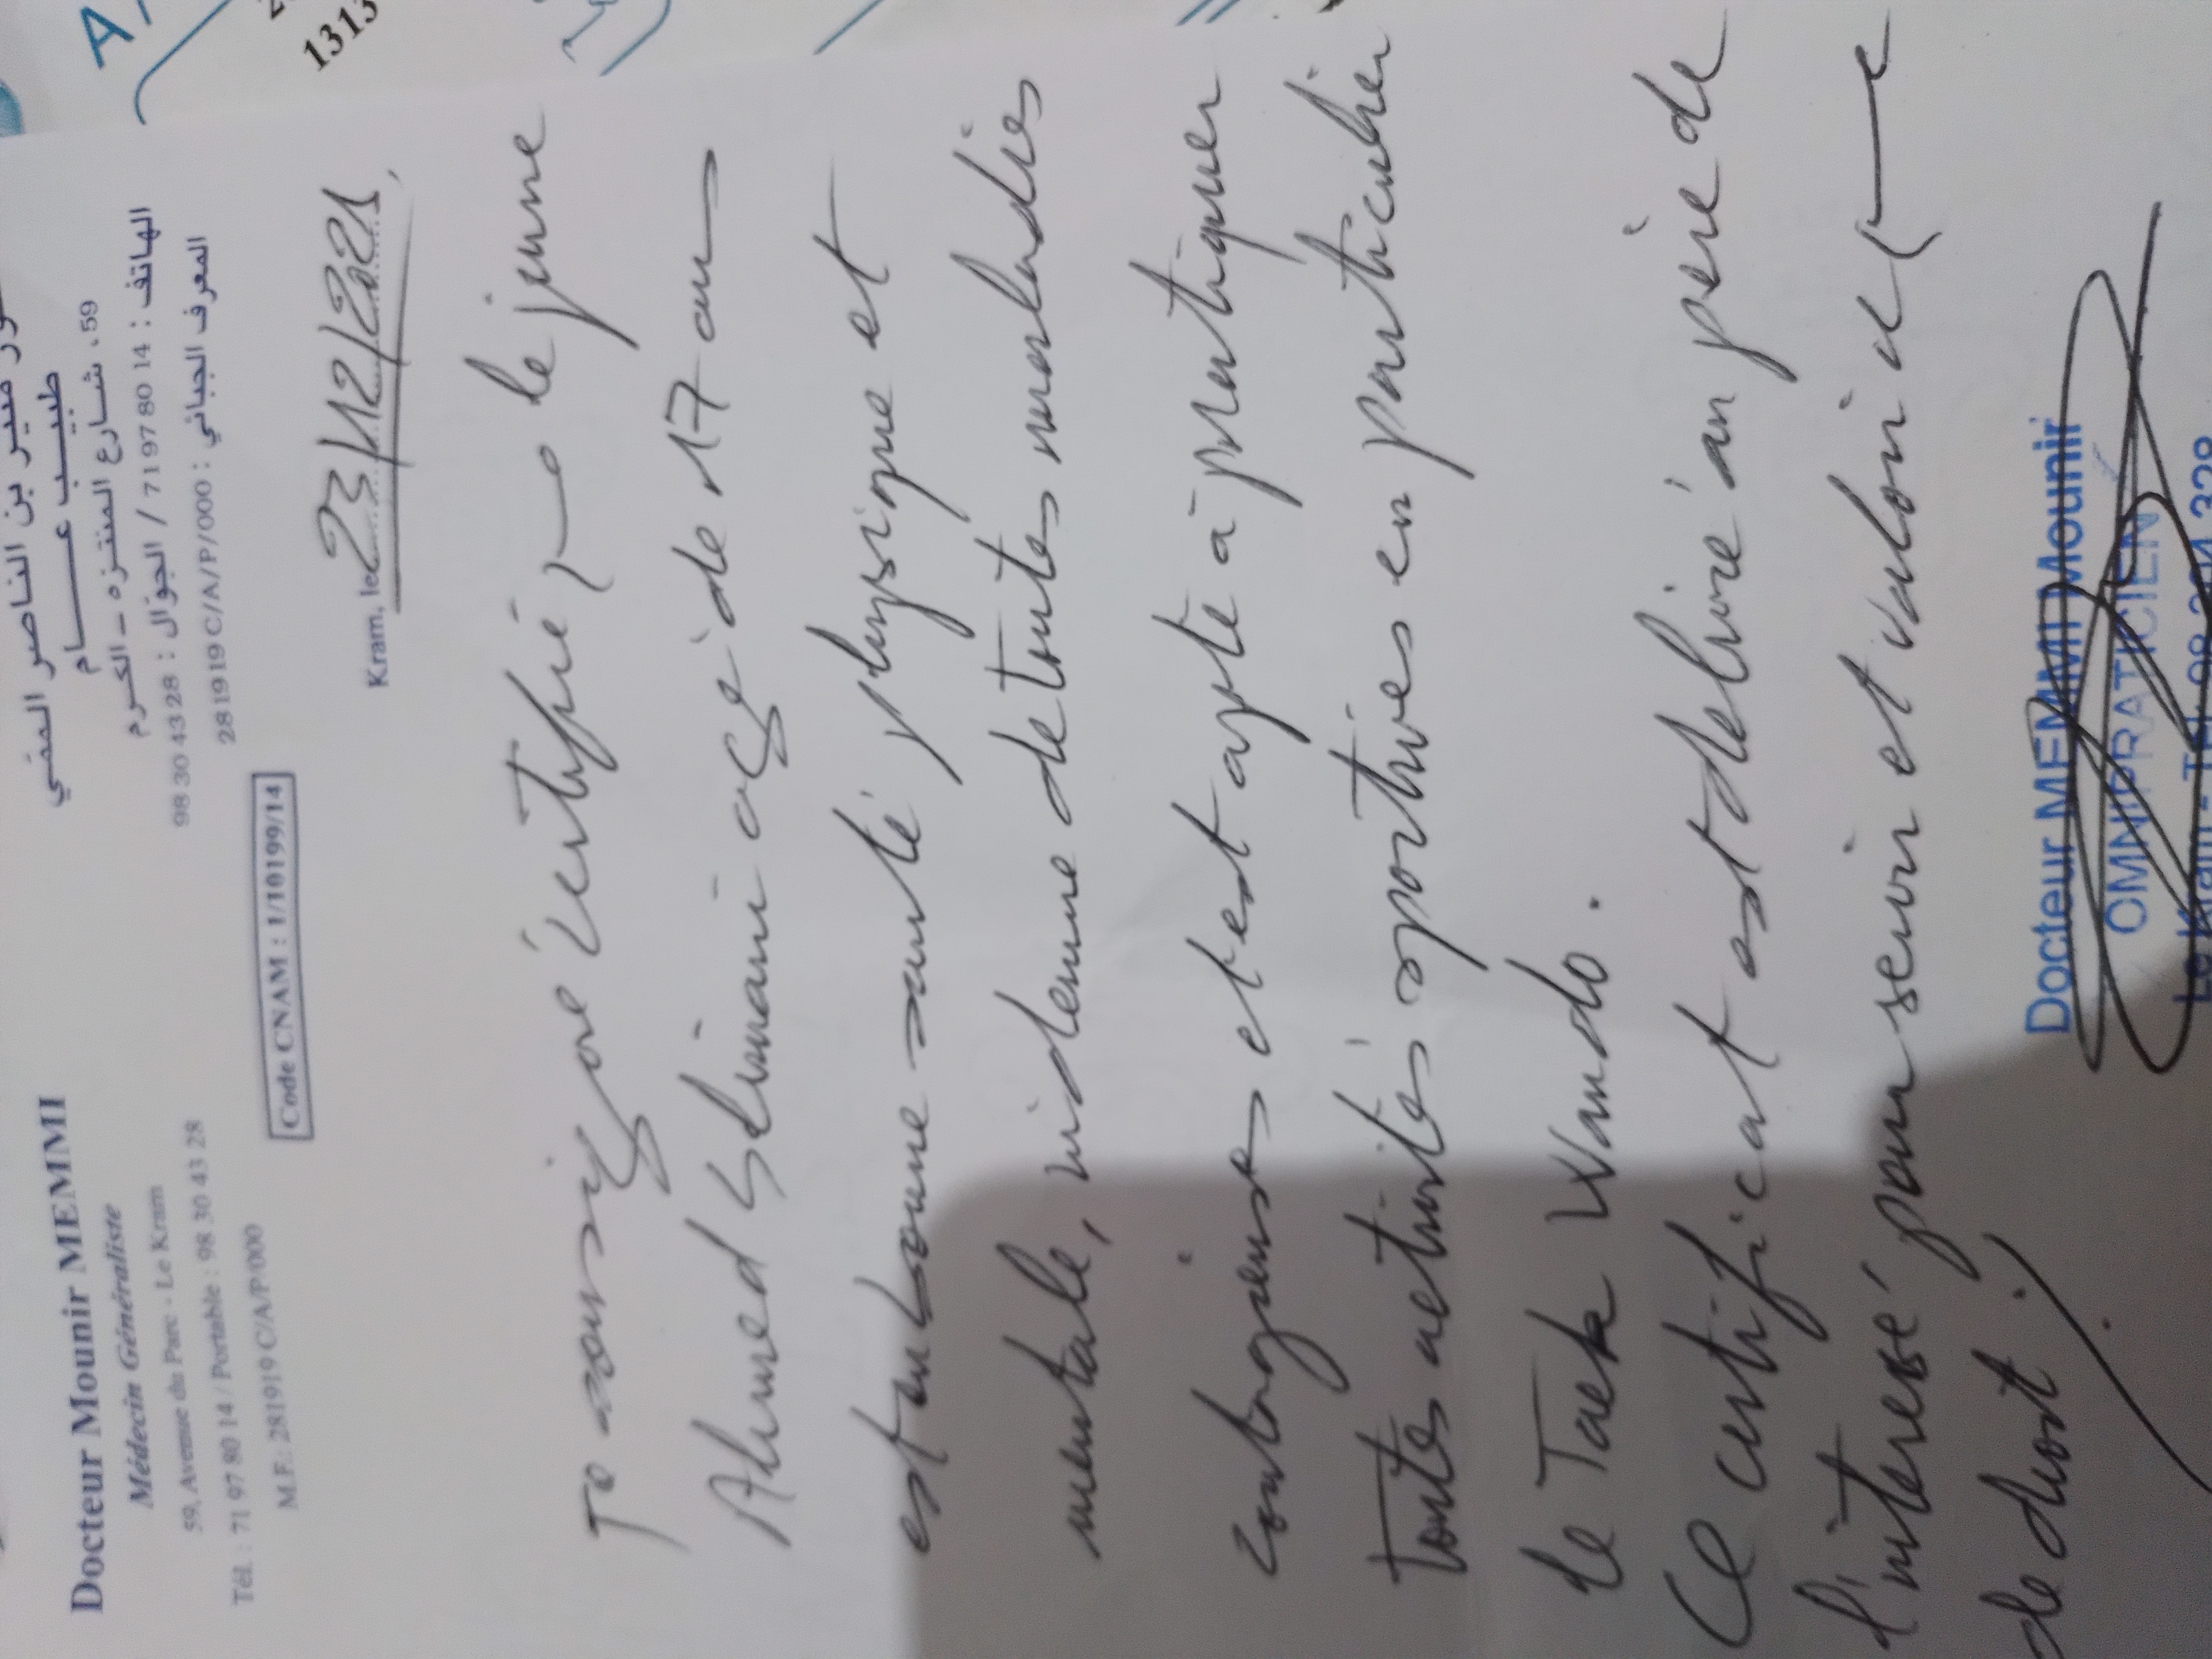 Docteur Mounir MEMMI
Médecin Généraliste
59, Avenue du Parc - Le Kram
Tél. : 71 97 80 14 / Portable : 98 30 43 28
M.F.: 281919 C/A/P/000
منير بن الناصر الممي
طبيب عام
59، شارع المنتزه - الكرم
الهاتف : 14 80 97 71 / الجوّال : 28 43 30 98
المعرف الجبائي : 281919 C/A/P/000
Code CNAM : 1/10199/14
Kram, le 23/12/2021
Je soussigné certifie, le jeune
Ahmed Slimani agé de 17 ans
est en bonne santé physique et
mentale, indemne de toutes maladies
contagieuses et est apte à pratiquer
toutes activités sportives en particulier
le Taek Wando.
Ce certificat est délivré au père de
l'interessé pour servir et valoir ce
de droit.
Docteur MEMMI Mounir
OMNIPRATICIEN
Le Kram - Tél: 98 304 328
1313